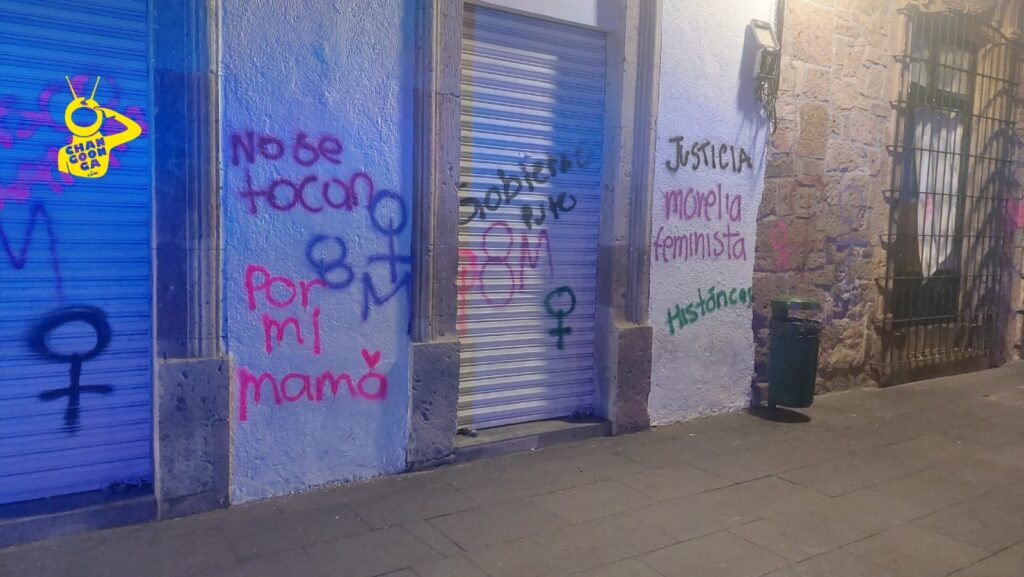 CHAN
GOON
GA
.com
No se
tocan
8M
Por
mi
mamá
Gobierno
Puto
8M
JUSTICIA
morelia
feminista
Históricas
M